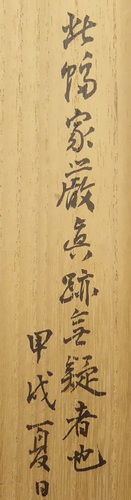 此幅家厳真跡無疑者也
甲戌夏日